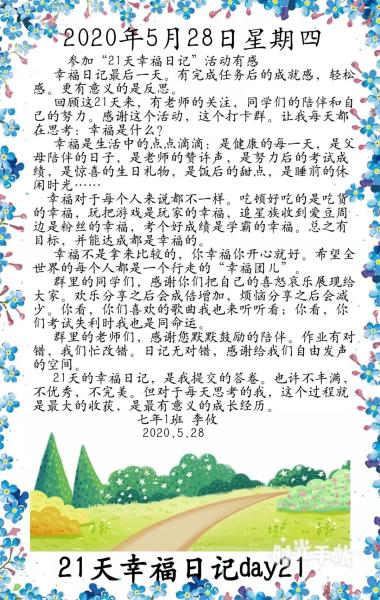 2020年5月28日星期四
参加“21天幸福日记”活动有感
幸福日记最后一天。有完成任务后的成就感，轻松
感。更有意义的是反思。
回顾这21天来，有老师的关注，同学们的陪伴和自
己的努力。感谢这个活动，这个打卡群。让我每天都
在思考：幸福是什么？
幸福是生活中的点点滴滴：是健康的每一天，是父
母陪伴的日子，是老师的赞许声，是努力后的考试成
绩，是惊喜的生日礼物，是饭后的甜点，是睡前的休
闲时光……
幸福对于每个人来说都不一样。吃顿好吃的是吃货
的幸福，玩把游戏是玩家的幸福，追星族收到爱豆周
边是粉丝的幸福，考个好成绩是学霸的幸福。总之有
目标，并能达成都是幸福的。
幸福不是拿来比较的，你幸福你开心就好。希望全
世界的每个人都是一个行走的“幸福团儿”。
群里的同学们，感谢你们把自己的喜怒哀乐展现给
大家。欢乐分享之后会成倍增加，烦恼分享之后会减
少。你看，你们喜欢的歌曲我也来听听看；你看，你
们考试失利时我也是同命运。
群里的老师们，感谢您默默鼓励的陪伴。作业有对
错，我们忙改错。日记无对错，感谢给我们自由发声
的空间。
21天的幸福日记，是我提交的答卷。也许不丰满，
不优秀，不完美。但对于每天思考的我，这个过程就
是最大的收获，是最有意义的成长经历。
七年1班 李攸
2020.5.28
时光手帐
21天幸福日记day21